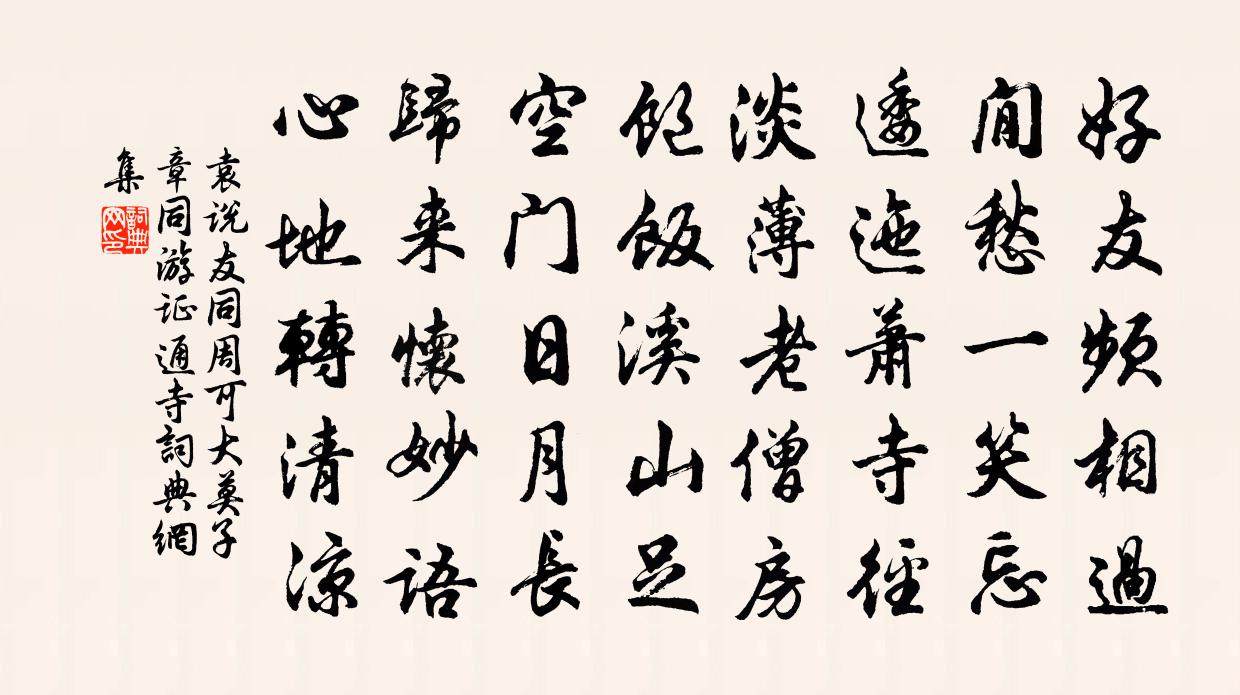 好友頻相過
閒愁一笑忘
逶迤蕭寺徑
淡薄老僧房
飽飯溪山足
空门日月長
歸来懷妙語
心地轉清涼
袁说友同周可大莫子
章同游证通寺詞典網
集
詞典网印